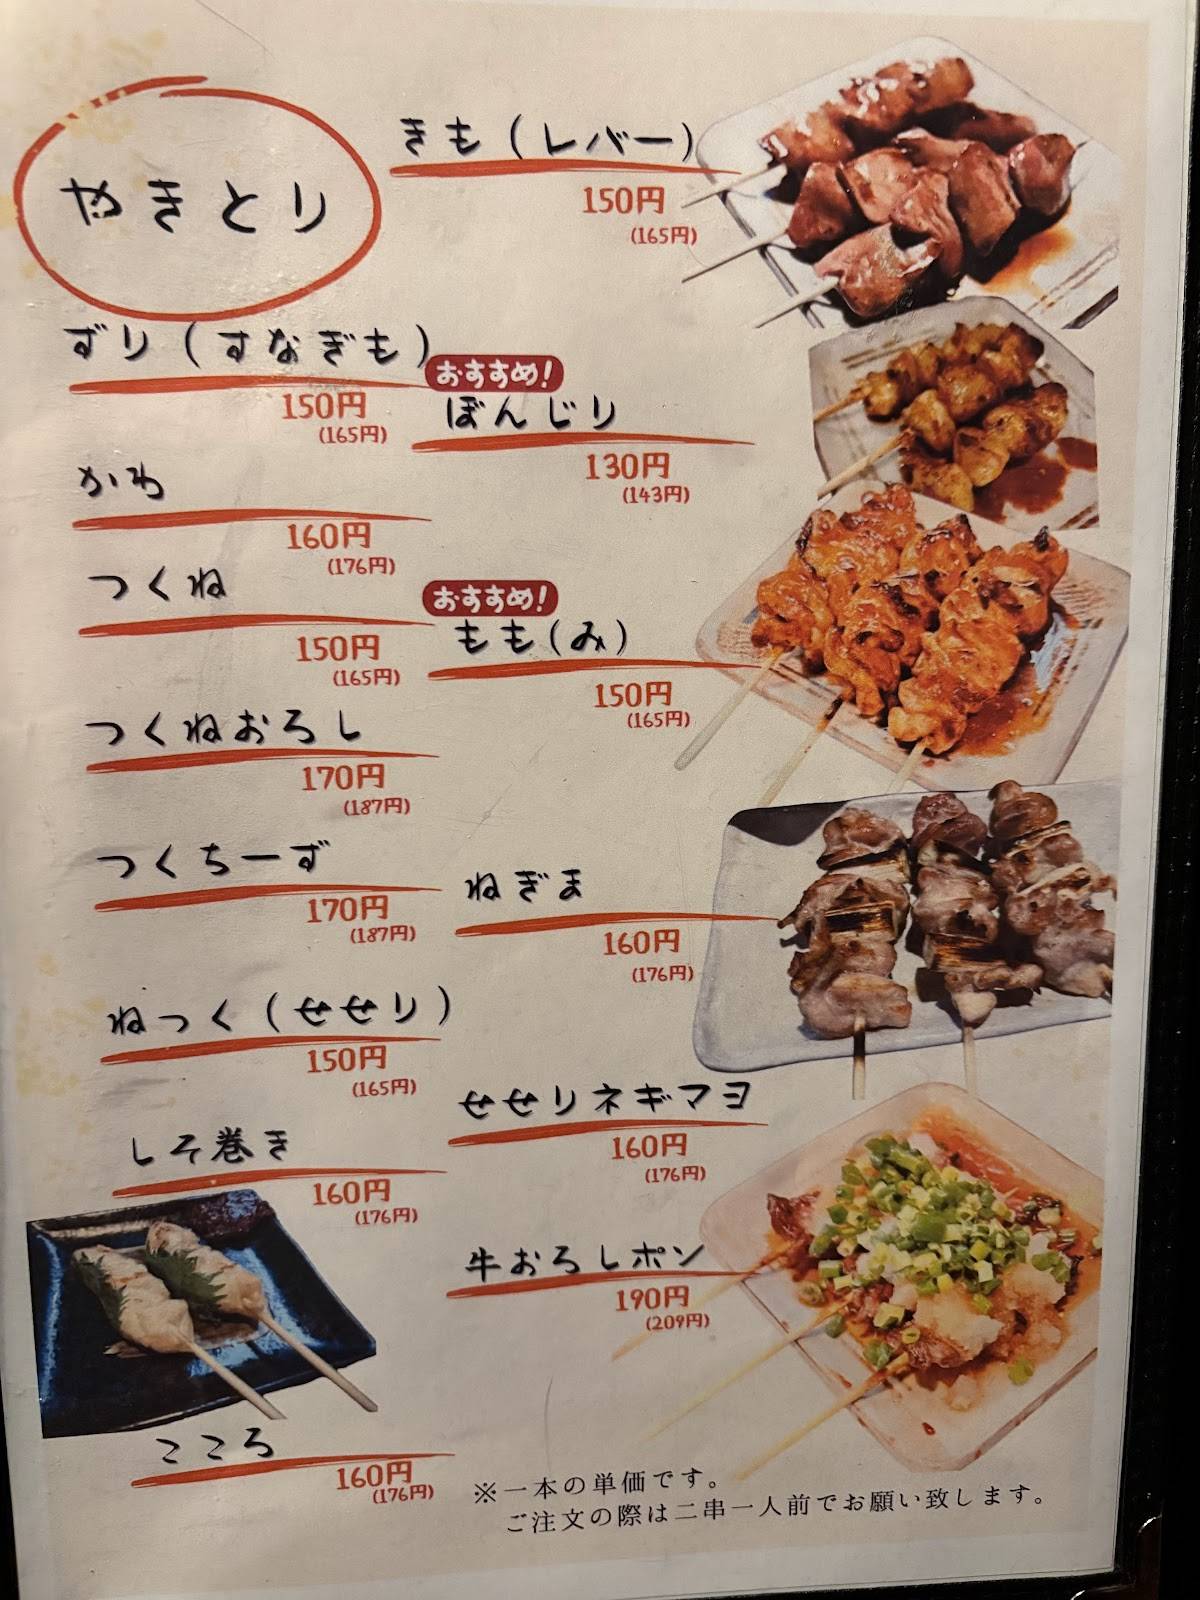 やきとり
きも(レバー)
150円
(165円)
ずり(すなぎも)
150円
(165円)
おすすめ!
ぼんじり
130円
(143円)
かわ
160円
(176円)
つくね
150円
(165円)
おすすめ!
もも(み)
150円
(165円)
つくねおろし
170円
(187円)
つくちーず
170円
(187円)
ねぎま
160円
(176円)
ねっく(せせり)
150円
(165円)
せせりネギマヨ
160円
(176円)
しそ巻き
160円
(176円)
牛おろしポン
190円
(209円)
こころ
160円
(176円)
※一本の単価です。
ご注文の際は二串一人前でお願い致します。